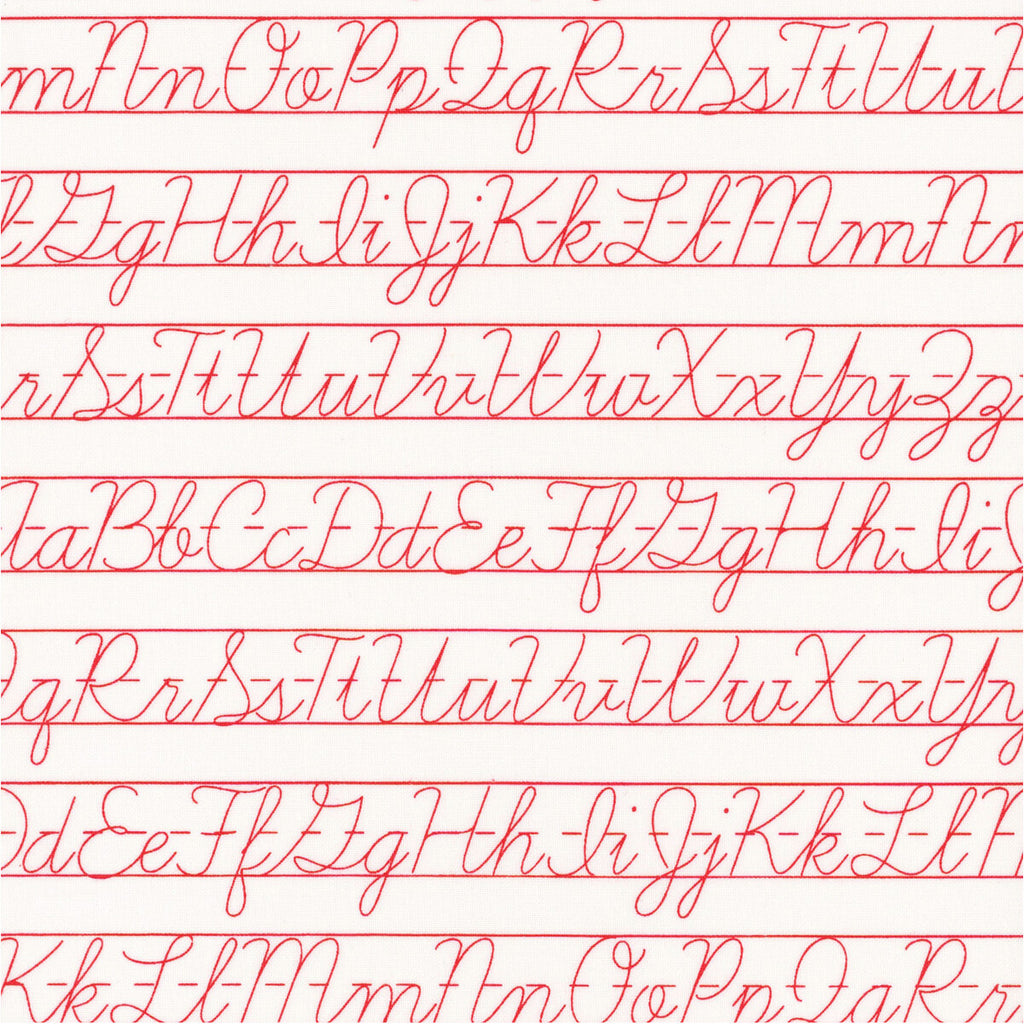 m Nn Oo Pp Qq Rr Ss Tt Uu
Gg Hh Ii Jj Kk Ll Mm Nn
r Ss Tt Uu Vv Ww Xx Yy Zz
Aa Bb Cc Dd Ee Ff Gg Hh Ii J
Qq Rr Ss Tt Uu Vv Ww Xx Yy
Dd Ee Ff Gg Hh Ii Jj Kk Ll
Kk Ll Mm Nn Oo Pp Qq Rr